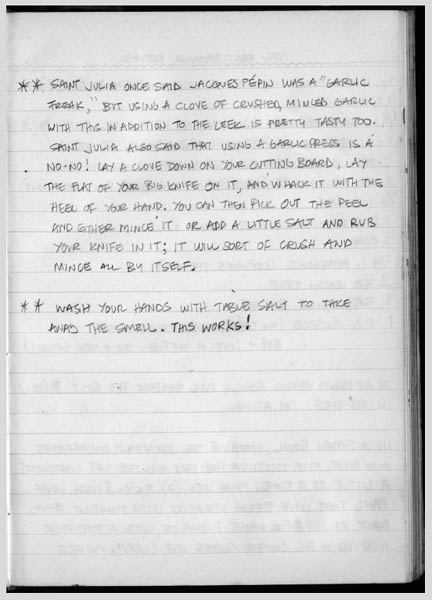 ** SAINT JULIA ONCE SAID JACQUES PÉPIN WAS A "GARLIC
FREAK," BUT USING A CLOVE OF CRUSHED, MINCED GARLIC
WITH THIS IN ADDITION TO THE LEEK IS PRETTY TASTY TOO.
SAINT JULIA ALSO SAID THAT USING A GARLIC PRESS IS A
NO-NO! LAY A CLOVE DOWN ON YOUR CUTTING BOARD, LAY
THE FLAT OF YOUR BIG KNIFE ON IT, AND WHACK IT WITH THE
HEEL OF YOUR HAND. YOU CAN THEN PICK OUT THE PEEL
AND EITHER MINCE IT OR ADD A LITTLE SALT AND RUB
YOUR KNIFE IN IT; IT WILL SORT OF CRUSH AND
MINCE ALL BY ITSELF.
** WASH YOUR HANDS WITH TABLE SALT TO TAKE
AWAY THE SMELL. THIS WORKS!